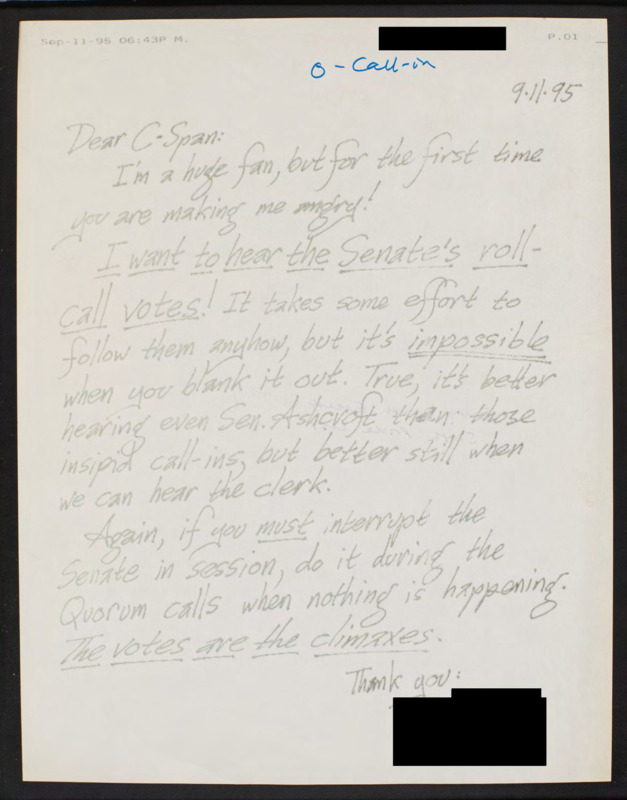 Sep-11-95 06:43P M.
P.01
o - Call-in
9.11.95
Dear C-Span:
I'm a huge fan, but for the first time
you are making me angry!
I want to hear the Senate's roll-
call votes! It takes some effort to
follow them anyhow, but it's impossible
when you blank it out. True, it's better
hearing even Sen. Ashcroft than those
insipid call-ins, but better still when
we can hear the clerk.
Again, if you must interrupt the
Senate in session, do it during the
Quorum calls when nothing is happening.
The votes are the climaxes.
Thank you: